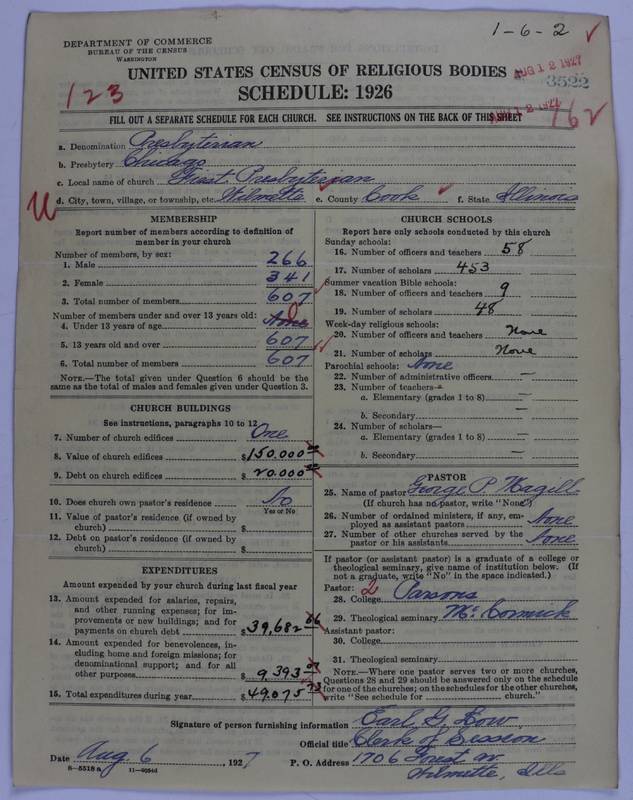 DEPARTMENT OF COMMERCE
BUREAU OF THE CENSUS
WASHINGTON
1-6-2
AUG 12 1927
3522
UNITED STATES CENSUS OF RELIGIOUS BODIES
123
SCHEDULE: 1926
AUG 12 1927
762
FILL OUT A SEPARATE SCHEDULE FOR EACH CHURCH. SEE INSTRUCTIONS ON THE BACK OF THIS SHEET
a. Denomination Presbyterian
b. Presbytery Chicago
c. Local name of church First Presbyterian
U
d. City, town, village, or township, etc. Wilmette e. County Cook f. State Illinois
MEMBERSHIP
Report number of members according to definition of member in your church
Number of members, by sex:
1. Male 266
2. Female 341
3. Total number of members 607
Number of members under and over 13 years old:
4. Under 13 years of age None 0
5. 13 years old and over 607
6. Total number of members 607
NOTE.—The total given under Question 6 should be the same as the total of males and females given under Question 3.
CHURCH BUILDINGS
See instructions, paragraphs 10 to 12
7. Number of church edifices One
8. Value of church edifices $150,000.00
9. Debt on church edifices $20,000.00
10. Does church own pastor's residence No
Yes or No
11. Value of pastor's residence (if owned by church) $
12. Debt on pastor's residence (if owned by church) $
EXPENDITURES
Amount expended by your church during last fiscal year
13. Amount expended for salaries, repairs, and other running expenses; for improvements or new buildings; and for payments on church debt $39,682
14. Amount expended for benevolences, including home and foreign missions; for denominational support; and for all other purposes $9393
15. Total expenditures during year $49,075.73
CHURCH SCHOOLS
Report here only schools conducted by this church
Sunday schools:
16. Number of officers and teachers 58
17. Number of scholars 453
Summer vacation Bible schools:
18. Number of officers and teachers 9
19. Number of scholars 48
Week-day religious schools:
20. Number of officers and teachers None
21. Number of scholars None
Parochial schools: None
22. Number of administrative officers —
23. Number of teachers—
a. Elementary (grades 1 to 8) —
b. Secondary —
24. Number of scholars—
a. Elementary (grades 1 to 8) —
b. Secondary —
PASTOR
25. Name of pastor George P. Magill
(If church has no pastor, write "None")
26. Number of ordained ministers, if any, employed as assistant pastors None
27. Number of other churches served by the pastor or his assistants None
If pastor (or assistant pastor) is a graduate of a college or theological seminary, give name of institution below. (If not a graduate, write "No" in the space indicated.)
Pastor: 2
28. College Parsons
29. Theological seminary McCormick
Assistant pastor:
30. College
31. Theological seminary
NOTE.—Where one pastor serves two or more churches, Questions 28 and 29 should be answered only on the schedule for one of the churches; on the schedules for the other churches, write "See schedule for church."
Signature of person furnishing information Earl G. Low
Official title Clerk of Session
Date Aug. 6, 1927 P. O. Address 1706 Forest av
Wilmette, Ills
8—5518 a 11—9084d